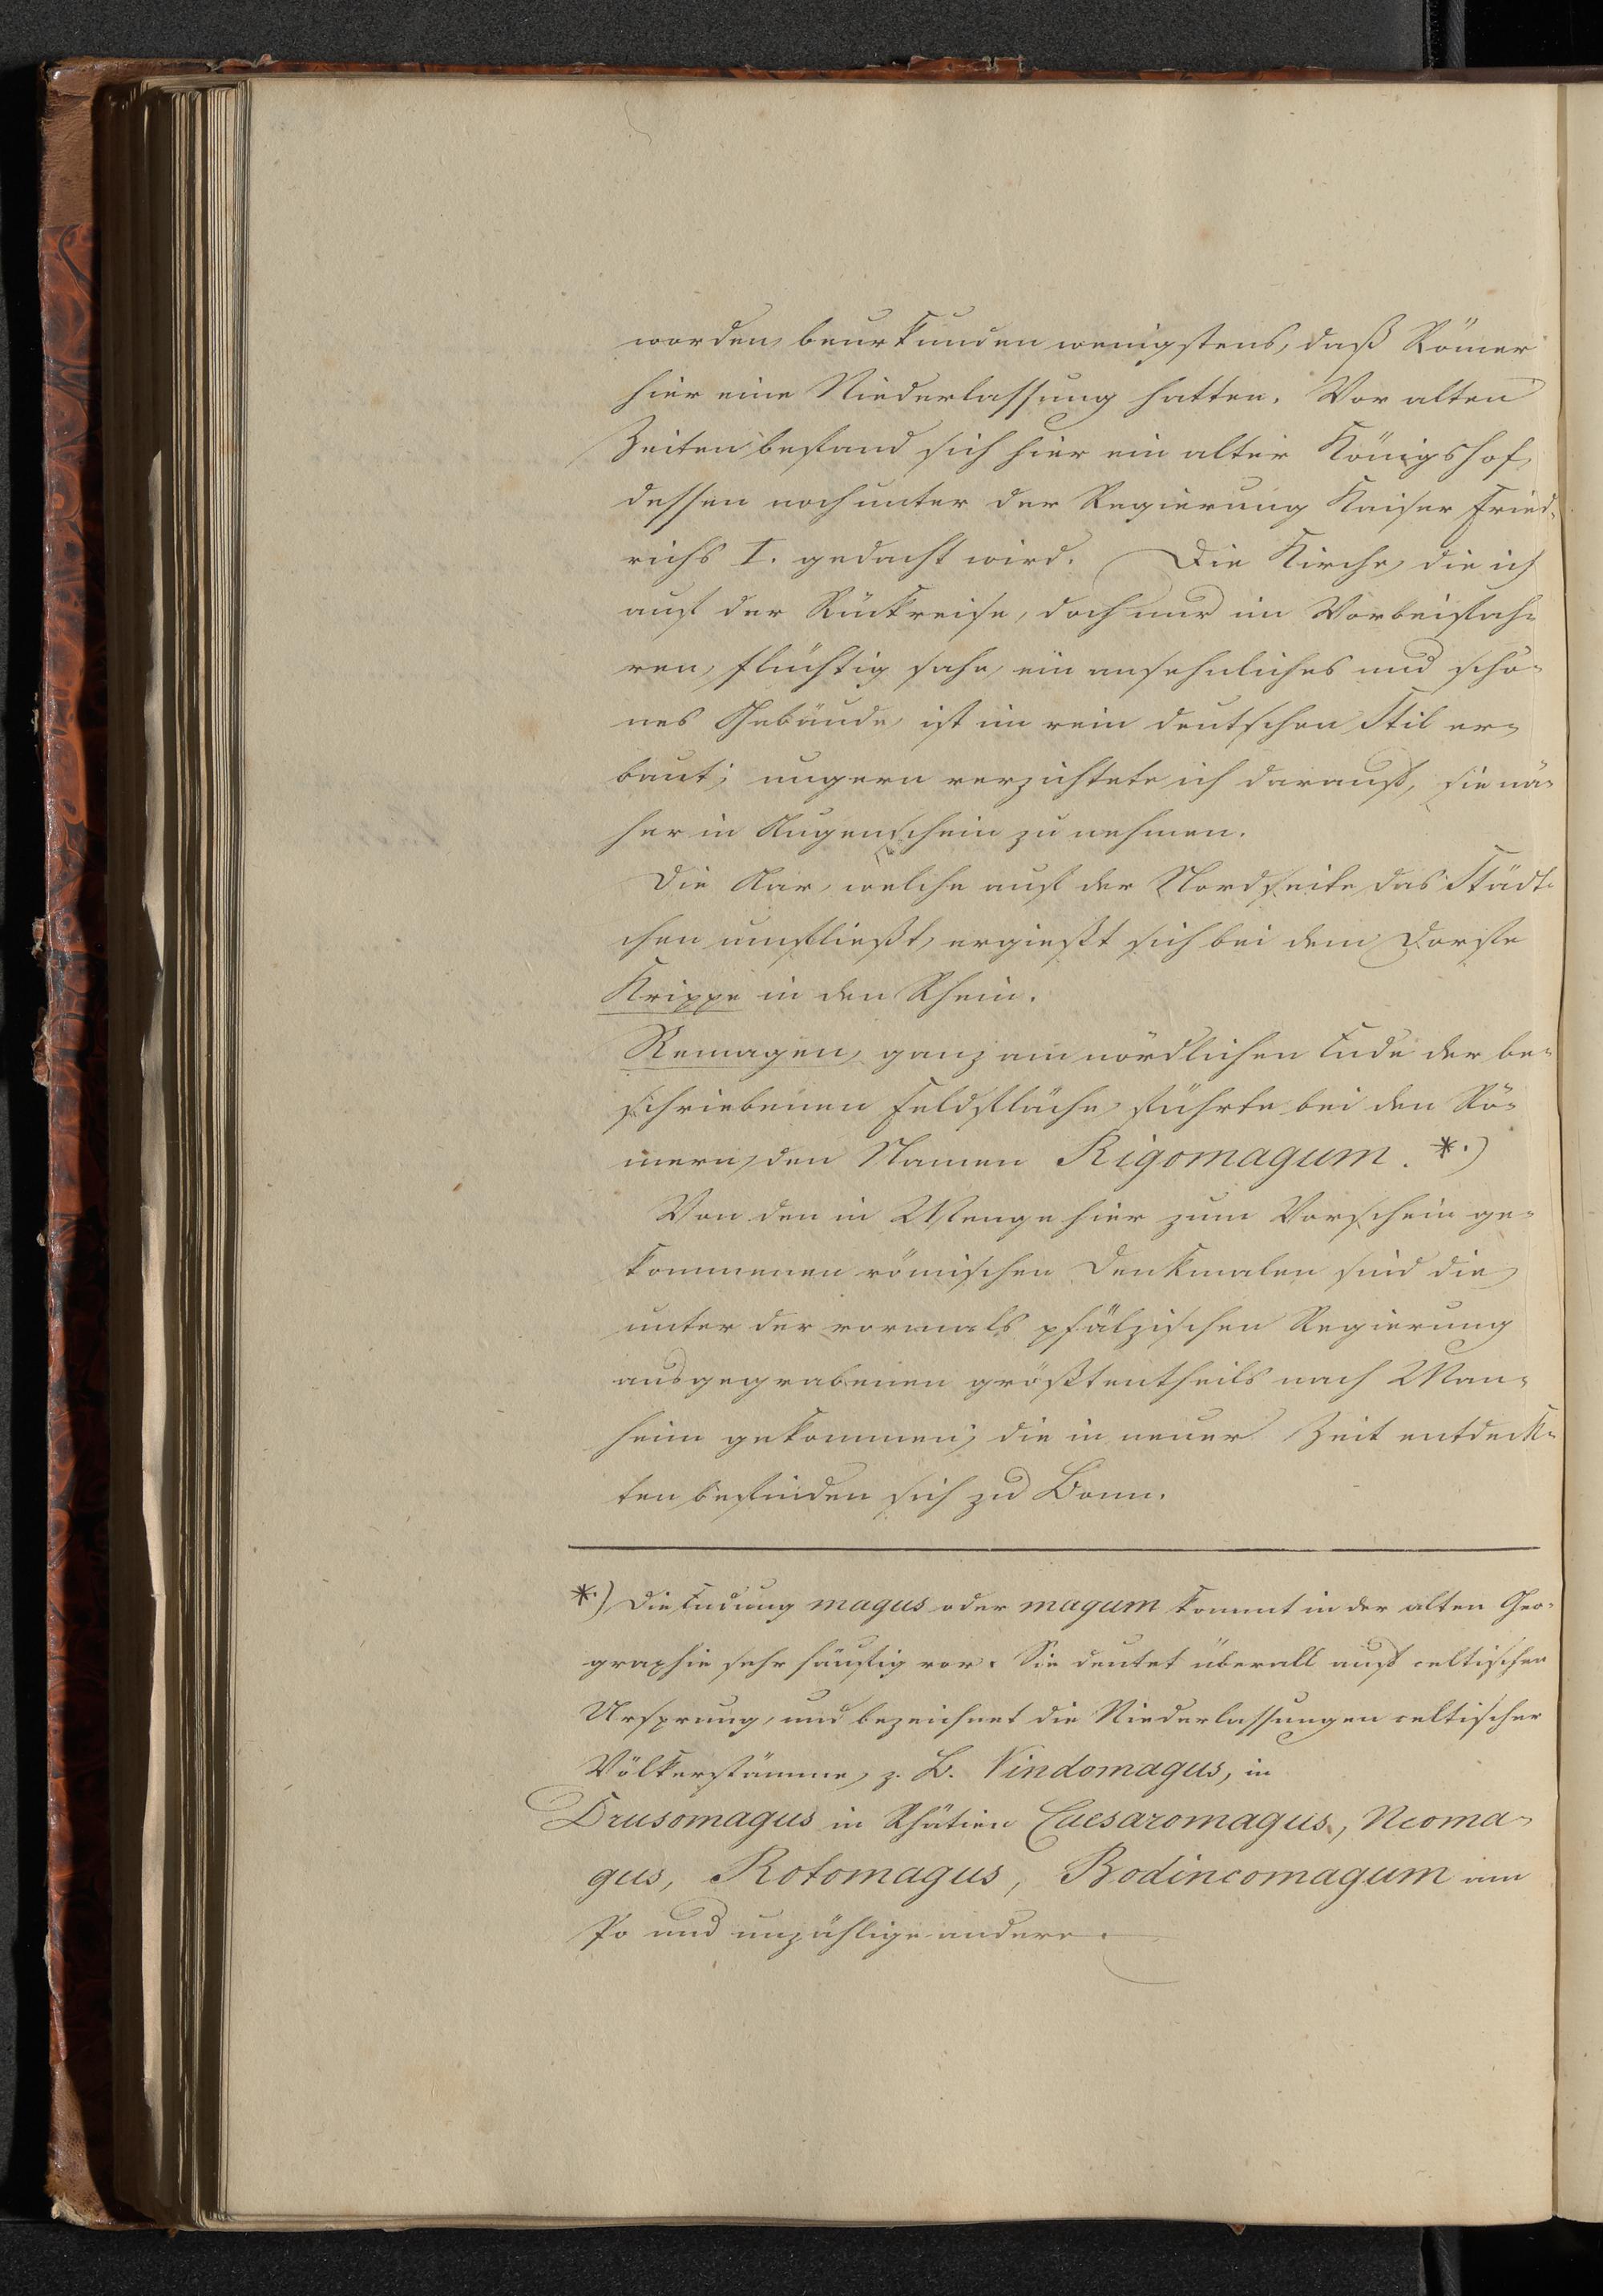 worden, beurkunden wenigstens, daß Römer
hier eine Niederlassung hatten. Vor alten
Zeiten befand sich hier ein alter Königshof,
dessen noch unter der Regierung Kaiser Fried-
richs I. gedacht wird. Die Kirche, die ich
auf der Rückreise, doch nur im Vorbeifah-
ren, flüchtig sahe, ein ansehnliches und schö-
nes Gebäude, ist im rein deutschen Stil er-
baut; ungern verzichtete ich darauf, sie nä-
her in Augenschein zu nehmen.
Die Aar, welche auf der Nordseite das Städt-
chen umfließt, ergießt sich bei dem Dorfe
Krippe in den Rhein.
Remagen, ganz am nördlichen Ende der be-
schriebenen Feldfläche, führte bei den Rö-
mern, den Namen Rigomagum. *.)
Von den in Menge hier zum Vorschein ge-
kommenen römischen Denkmalen sind die
unter der vormals pfälzischen Regierung
ausgegrabenen größtentheils nach Man-
heim gekommen; die in neuer Zeit entdeck-
ten befinden sich zu Bonn.
*.) Die Endung magus oder magum kommt in der alten Geo-
graphie sehr häufig vor. Sie deutet überall auf celtischen
Ursprung, und bezeichnet die Niederlassungen celtischer
Völkerstämme, z. B. Vindomagus, in
Drusomagus in Rhätien Caesaromagus, Neoma-
gus, Rotomagus, Bodincomagum am
Po und unzählige andere.